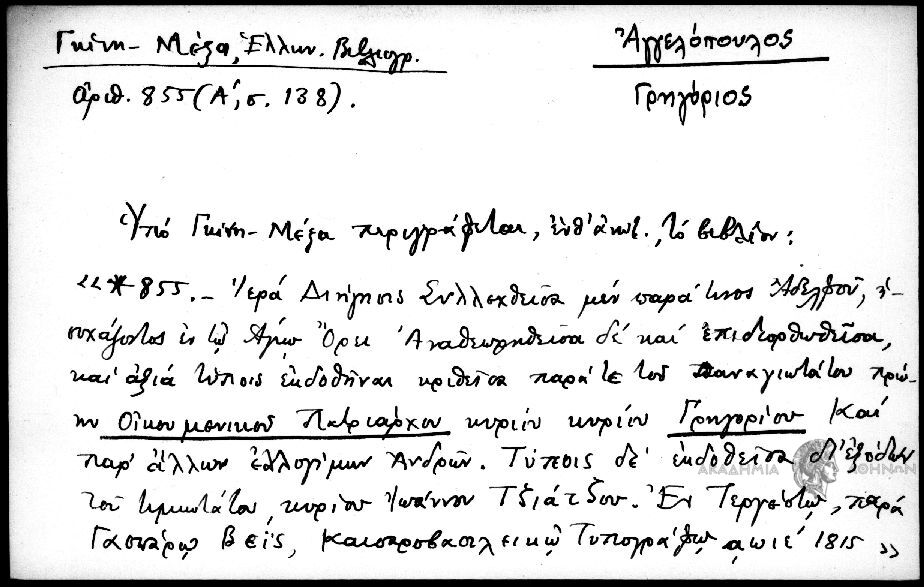 Γκίνη - Μέξα, Ἑλλην. Βιβλιογρ.
ἀριθ. 855 (Α΄, σ. 138).
Ἀγγελόπουλος
Γρηγόριος
Ὑπό Γκίνη - Μέξα περιγράφεται, ἐνθ' ἀνωτ., τό βιβλίον:
«*855. - Ἱερά Διήγησις Συλλεχθεῖσα μέν παρά τινος Ἀδελφοῦ, ἡ-
συχάζοντος ἐν τῷ Ἁγίῳ Ὄρει Ἀναθεωρηθεῖσα δέ καί ἐπιδιορθωθεῖσα,
καί ἀξιά τύποις ἐκδοθῆναι κριθεῖσα παρά τε τοῦ Παναγιωτάτου πρώ-
ην Οἰκουμενικοῦ Πατριάρχου κυρίου κυρίου Γρηγορίου καί
παρ' ἄλλων ἐλλογίμων Ἀνδρῶν. Τύποις δέ ἐκδοθεῖσα δι' ἐξόδων
τοῦ τιμιωτάτου κυρίου Ἰωάννου Τζιάτζου. Ἐν Τεργέστῳ, παρά
Γασπάρῳ Βεΐς, Καισαροβασιλεικῷ Τυπογράφῳ αωιέ 1815»
ΑΚΑΔΗΜΙΑ ΑΘΗΝΩΝ